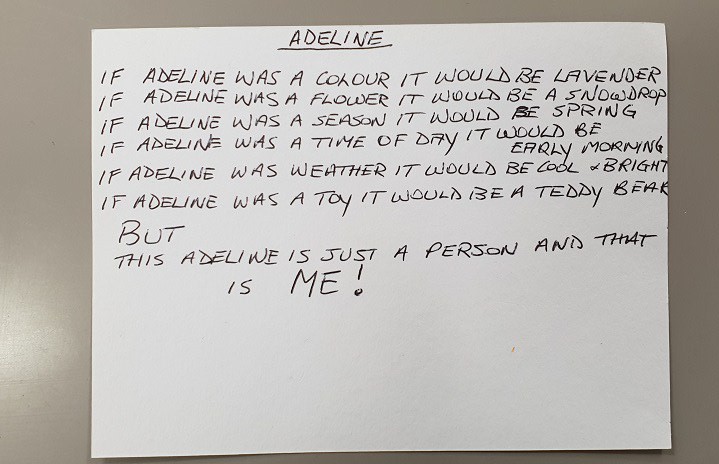 ADELINE
IF ADELINE WAS A COLOUR IT WOULD BE LAVENDER
IF ADELINE WAS A FLOWER IT WOULD BE A SNOWDROP
IF ADELINE WAS A SEASON IT WOULD BE SPRING
IF ADELINE WAS A TIME OF DAY IT WOULD BE
EARLY MORNING
IF ADELINE WAS WEATHER IT WOULD BE COOL & BRIGHT
IF ADELINE WAS A TOY IT WOULD BE A TEDDY BEAR
BUT
THIS ADELINE IS JUST A PERSON AND THAT
IS ME!